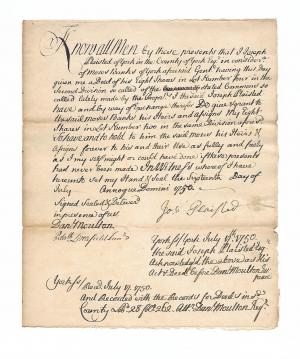 Know all Men by these presents that I Joseph
Plaisted of york in the County of york Esq. in consideration
of Moses Banks of York aforesaid Gent. having this Day
given me a Deed of his Eight Shares in Lot Number four in the
Second Division so called of the stated Commons so
called lately made by the Propr. I the said Joseph Plaisted
have and by way of Exchange therefor Do give & grant to
the said Moses Banks his Heirs and assigns My Eight
Shares in Lot Number two in the same Division afores
To have and to hold to him the said Moses his Heirs &
Assigns forever to his and their Use as fully and freely
as I my self might or could have done if these presents
had never been made In Witness whereof I have
hereunto set my Hand & Seal the Seventeenth Day of
July Annoque Domini 1750.
Signed Sealed & Delivered
in presence of us
Jos. Plaisted
Dan. Moulton
York ss York July 17. 1750.
The said Joseph Plaisted Esq.
Acknowledged the above as His
Act & Deed before Dan. Moulton Jus
peace
York ss Recd. July 17. 1750.
And Recorded with the Records for Deeds in sd.
County Lib. 28 fo. 262. Att. Dan. Moulton Reg.